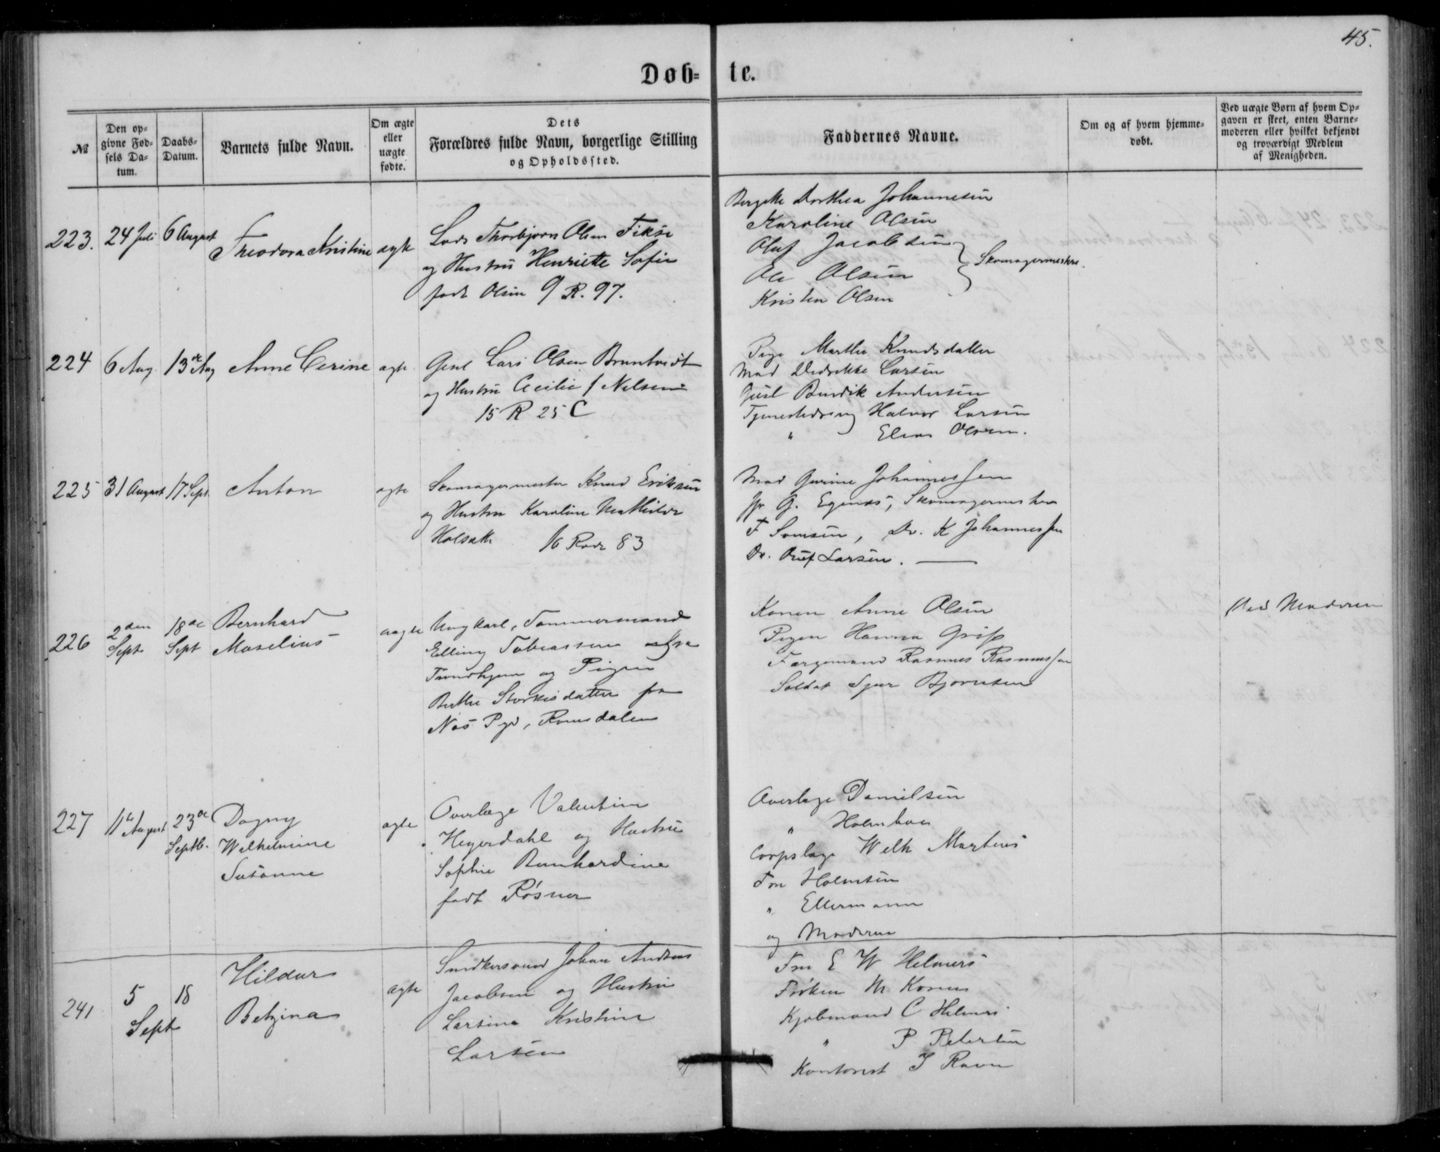 45.
Døb- te.
№
Den opgivne Fødsels Datum.
Daabs-Datum.
Barnets fulde Navn.
Om ægte eller uægte fødte.
Dets Forældres fulde Navn, borgerlige Stilling og Opholdssted.
Faddernes Navne.
Om og af hvem hjemmedøbt.
Ved uægte Børn af hvem Opgaven er skeet, enten Barnemoderen eller hvilket bekjendt og troværdigt Medlem af Menigheden.
223. 24 Juli 6 August Theodora Kristine ægte
Lods Thorbjørn Olsen Fiksé
og Hustru Henriette Sofie
født Olsen 9 R. 97.
Dorthea Johannesen
Karoline Olsen
Oluf Jacobsen
Ole Olsen
Skomagermestre.
Kristen Olsen
224 6 Aug 13de Aug Anne Cerine ægte
Lars Olsen
og Hustru Cecilie f Nelsen
15 R 25 C
Pige Marthe Knudsdatter
Mad Didrikke Larsen
Andersen
Halvor Larsen
" Elias Olsen.
225 31 August 17 Sept. Anton ægte
Skomagermester Knud Eriksen
og Hustru Karoline Mathilde
Holsøth 16 Rode 83
Mad Gurine Johannessen
Hr G. Egenæs, Skomagermester
F Somsen, Do. K Johannessen
Do. Oluf Larsen.
226 2den Sept 18de Sept Bernhard Moselius uægte
Ungkarl, Tømmermand
Elling Tobiassen
Trondhjem og Pigen
Berthe Størkesdatter fra
Næs Pgd, Romsdalen
Konen Anne Olsen
Pigen Hanna
Færgemand Rasmus Rasmussen
Soldat Bjørnsen
Ved Moderen
227 11te August 23de Septb. Dagny Wilhelmine Susanne ægte
Overlæge Valentin
Heyerdahl og Hustru
Sophie Bernhardine
født Røsner
Overlæge Danielsen
" Holmboe
Corpslæge Wilh Martens
Fru Holmsen
" Ellermann
og Moderen
241 5 Sept 18 Hildur Betzina ægte
Snedkersvend Johan Andreas
Jacobsen og Hustru
Larsine Kristine
Larsen
Fru E W Helmers
Frøken M
Kjøbmand C Helmers
" P Petersen
Kontorist I Ravn